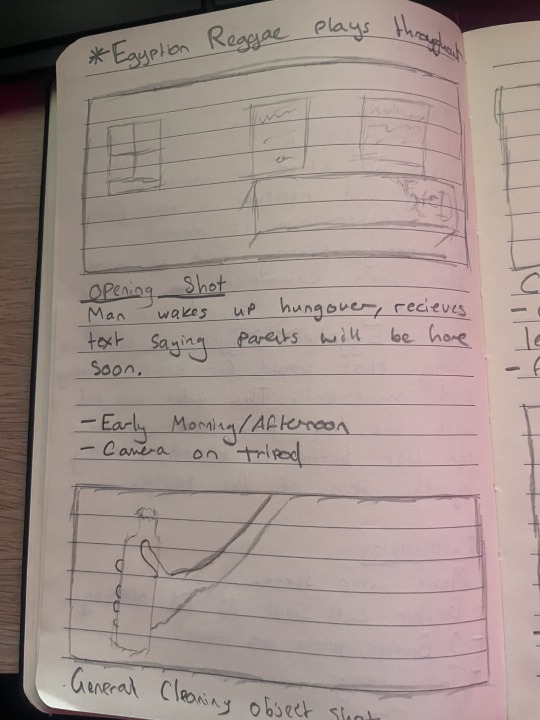 *Egyption Reggae plays throughout
Opening Shot
Man wakes up hungover, recieves
text saying parents will be home
soon.
- Early Morning/Afternoon
- Camera on tripod
General Cleaning object shot
C
-
le
- A